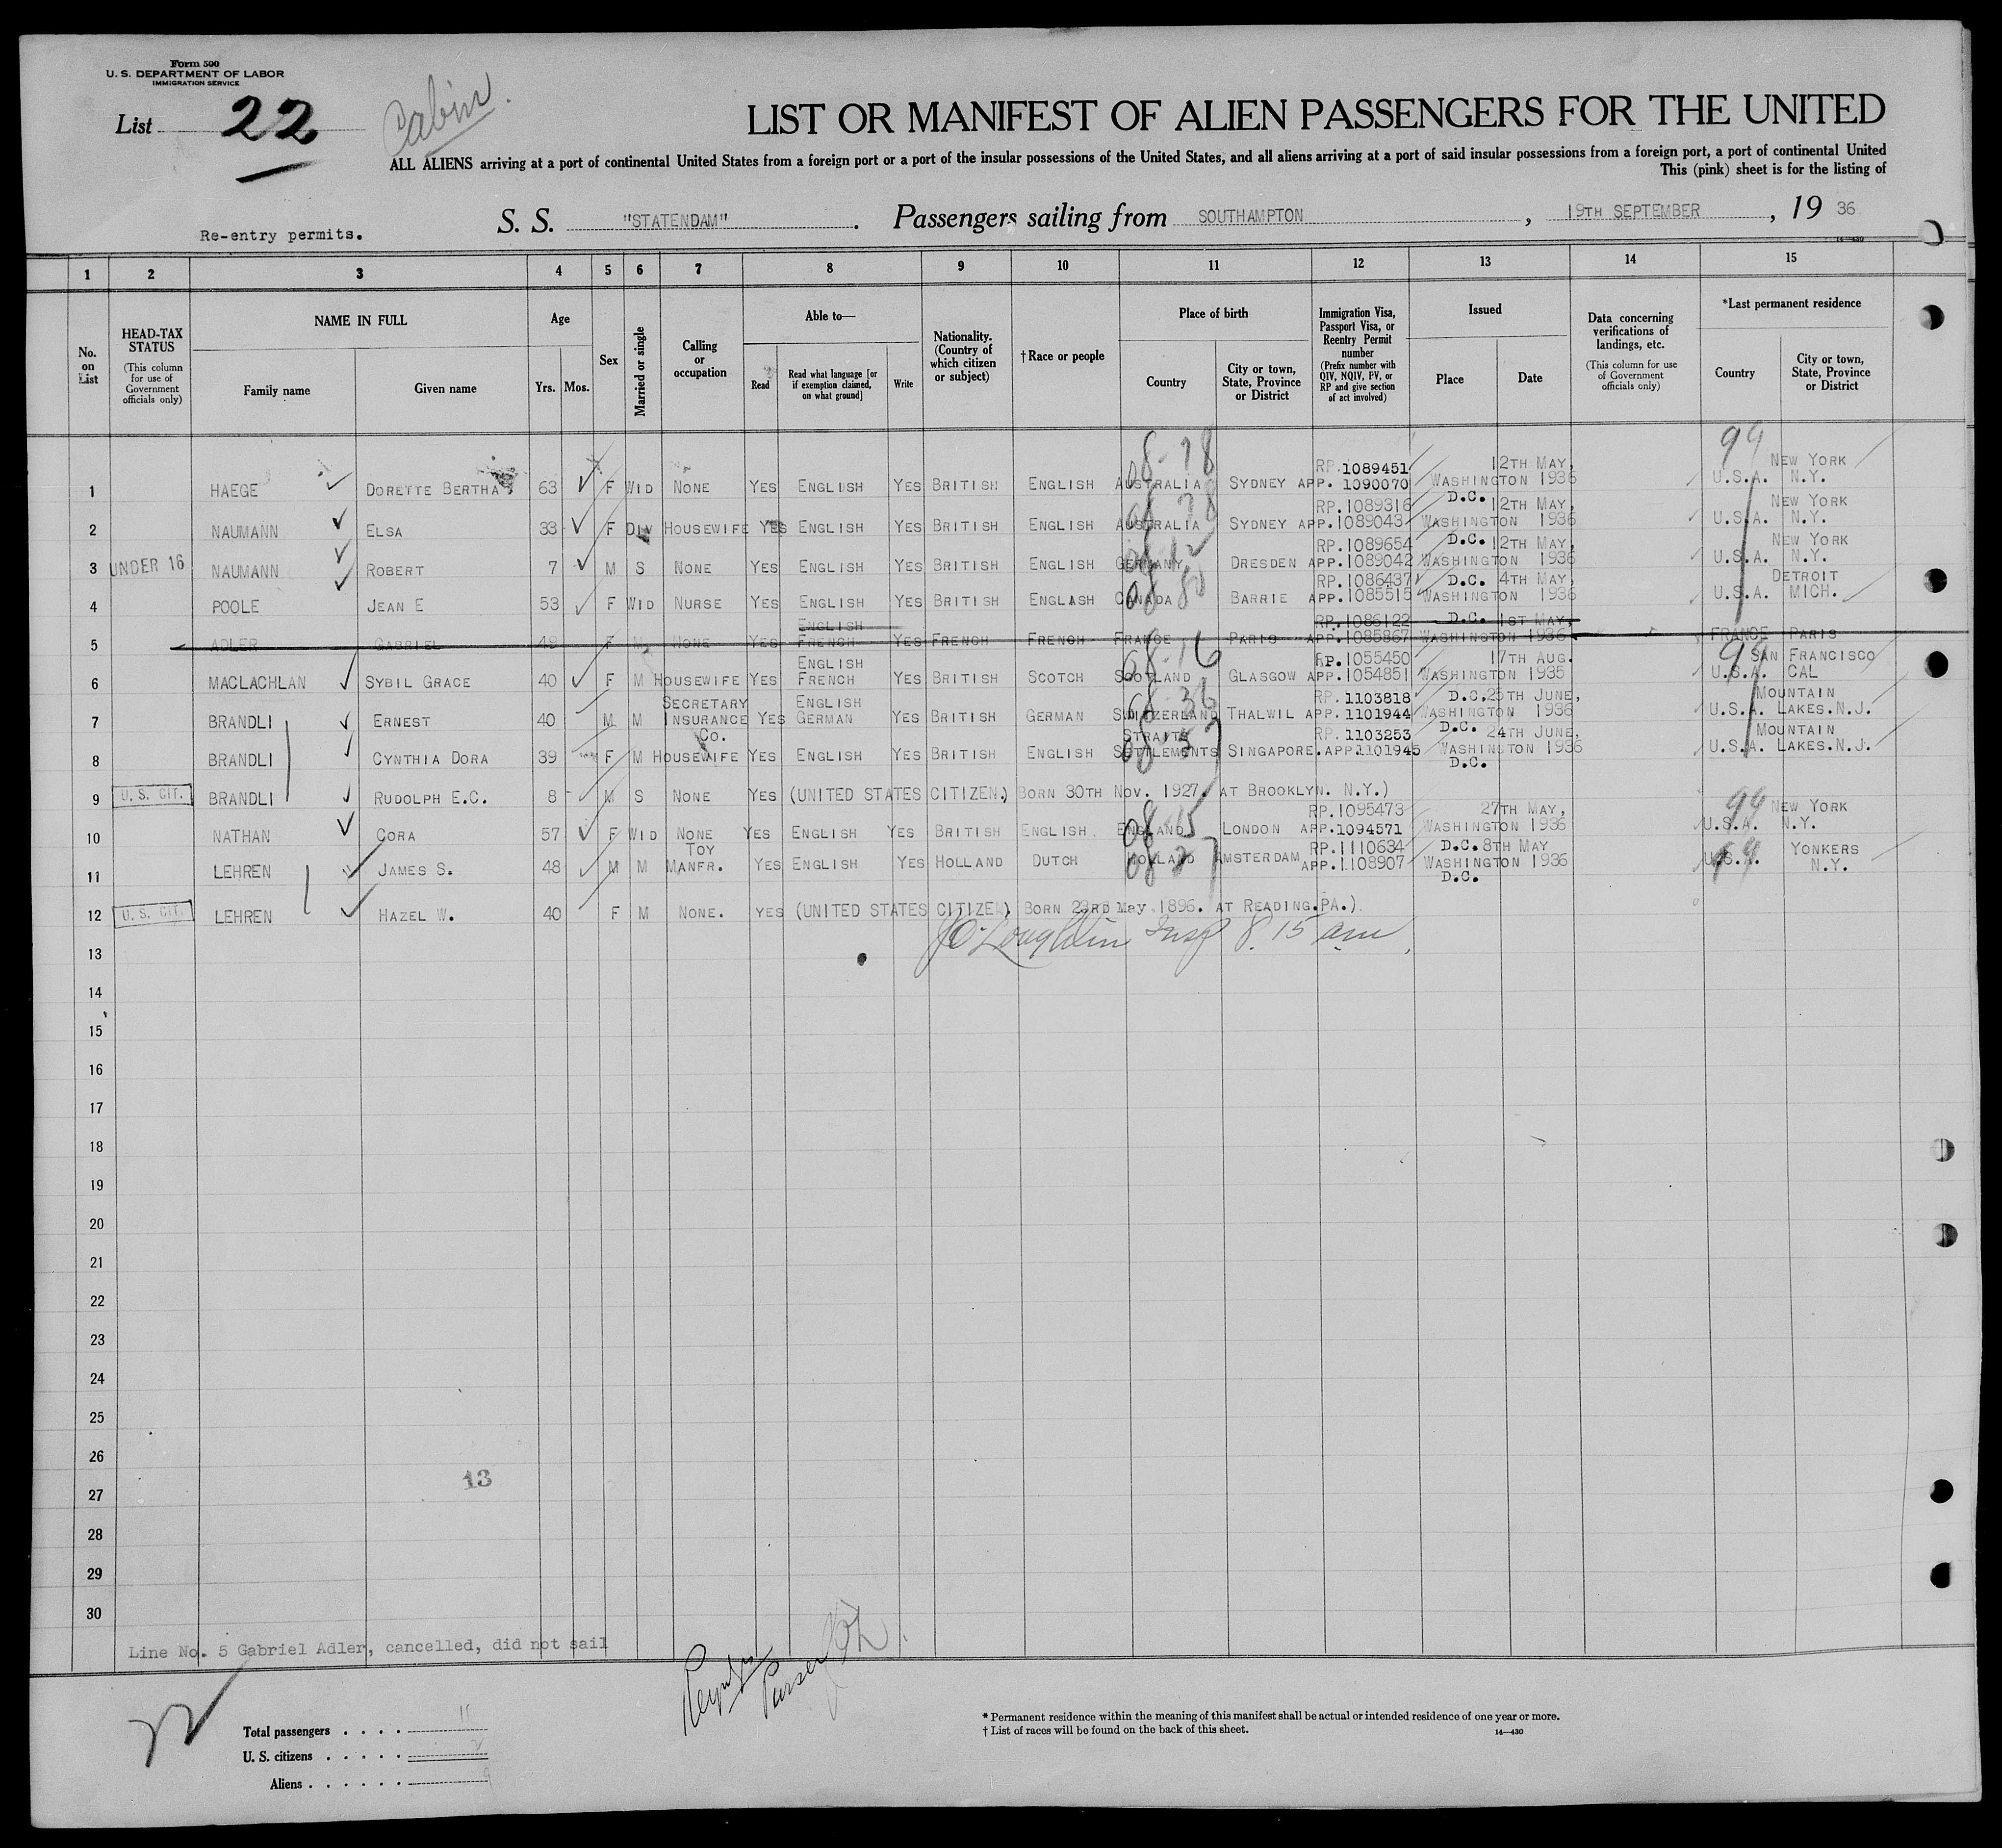 Form 500
U. S. DEPARTMENT OF LABOR
IMMIGRATION SERVICE
List 22
Cabin.
LIST OR MANIFEST OF ALIEN PASSENGERS FOR THE UNITED
ALL ALIENS arriving at a port of continental United States from a foreign port or a port of the insular possessions of the United States, and all aliens arriving at a port of said insular possessions from a foreign port, a port of continental United
This (pink) sheet is for the listing of
Re-entry permits.
S. S. "STATENDAM". Passengers sailing from SOUTHAMPTON, 19TH SEPTEMBER, 19 36
14—430
1 2 3 4 5 6 7 8 9 10 11 12 13 14 15
No. on List
HEAD-TAX STATUS (This column for use of Government officials only)
NAME IN FULL
Family name
Given name
Age
Yrs. Mos.
Sex
Married or single
Calling or occupation
Able to—
Read
Read what language [or if exemption claimed, on what ground]
Write
Nationality. (Country of which citizen or subject)
†Race or people
Place of birth
Country
City or town, State, Province or District
Immigration Visa, Passport Visa, or Reentry Permit number (Prefix number with QIV, NQIV, PV, or RP and give section of act involved)
Issued
Place
Date
Data concerning verifications of landings, etc. (This column for use of Government officials only)
*Last permanent residence
Country
City or town, State, Province or District
08-78 RP.1089451 12TH MAY, 99 NEW YORK
1 HAEGE DORETTE BERTHA 63 F WID NONE YES ENGLISH YES BRITISH ENGLISH AUSTRALIA SYDNEY APP. 1090070 WASHINGTON 1936 U.S.A. N.Y.
RP.1089316 D.C. 12TH MAY, NEW YORK
2 NAUMANN ELSA 33 F DIV HOUSEWIFE YES ENGLISH YES BRITISH ENGLISH AUSTRALIA SYDNEY APP.1089043 WASHINGTON 1936 U.S.A. N.Y.
RP.1089654 D.C. 12TH MAY, NEW YORK
3 UNDER 16 NAUMANN ROBERT 7 M S NONE YES ENGLISH YES BRITISH ENGLISH GERMANY DRESDEN APP.1089042 WASHINGTON 1936 U.S.A. N.Y.
RP.1086437 D.C. 4TH MAY, DETROIT
4 POOLE JEAN E 53 F WID NURSE YES ENGLISH YES BRITISH ENGLASH CANADA BARRIE APP.1085515 WASHINGTON 1936 U.S.A. MICH.
ENGLISH RP.1086122 D.C. 1ST MAY,
5 ADLER GABRIEL 49 F M NONE YES FRENCH YES FRENCH FRENCH FRANCE PARIS APP.1085867 WASHINGTON 1936 FRANCE PARIS
ENGLISH 08-16 RP.1055450 17TH AUG. 99 SAN FRANCISCO
6 MACLACHLAN SYBIL GRACE 40 F M HOUSEWIFE YES FRENCH YES BRITISH SCOTCH SCOTLAND GLASGOW APP.1054851 WASHINGTON 1935 U.S.A. CAL
SECRETARY ENGLISH RP.1103818 D.C. 25TH JUNE, MOUNTAIN
7 BRANDLI ERNEST 40 M M INSURANCE YES GERMAN YES BRITISH GERMAN SWITZERLAND THALWIL APP.1101944 WASHINGTON 1936 U.S.A. LAKES.N.J.
CO. STRAITS RP.1103253 D.C. 24TH JUNE, MOUNTAIN
8 BRANDLI CYNTHIA DORA 39 F M HOUSEWIFE YES ENGLISH YES BRITISH ENGLISH SETTLEMENTS SINGAPORE.APP.1101945 WASHINGTON 1936 U.S.A. LAKES.N.J.
D.C.
9 U. S. CIT. BRANDLI RUDOLPH E.C. 8 M S NONE YES (UNITED STATES CITIZEN.) BORN 30TH NOV. 1927. AT BROOKLYN. N.Y.)
RP.1095473 27TH MAY, 99 NEW YORK
10 NATHAN CORA 57 F WID NONE YES ENGLISH YES BRITISH ENGLISH. ENGLAND LONDON APP.1094571 WASHINGTON 1936 U.S.A. N.Y.
TOY RP.1110634 D.C. 8TH MAY YONKERS
11 LEHREN JAMES S. 48 M M MANFR. YES ENGLISH YES HOLLAND DUTCH HOLLAND AMSTERDAM APP.1108907 WASHINGTON 1936 U.S.A. N.Y.
D.C.
12 U. S. CIT. LEHREN HAZEL W. 40 F M NONE. YES (UNITED STATES CITIZEN) BORN 23RD MAY 1896. AT READING.PA.)
JO'Loughlin Insp 8.15 am
13
14
15
16
17
18
19
20
21
22
23
24
25
26
13
27
28
29
30
Line No. 5 Gabriel Adler, cancelled, did not sail
Purser
Total passengers . . . . 11
U. S. citizens . . . . . 2
Aliens . . . . . . 9
* Permanent residence within the meaning of this manifest shall be actual or intended residence of one year or more.
† List of races will be found on the back of this sheet.
14—430